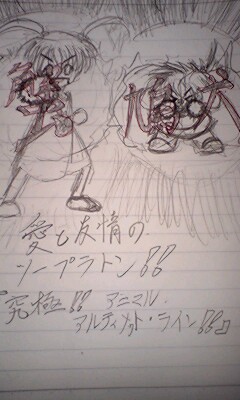 愛と友情の
ツープラトン!!
『究極!! アニマル
アルティメット・ライン!!』